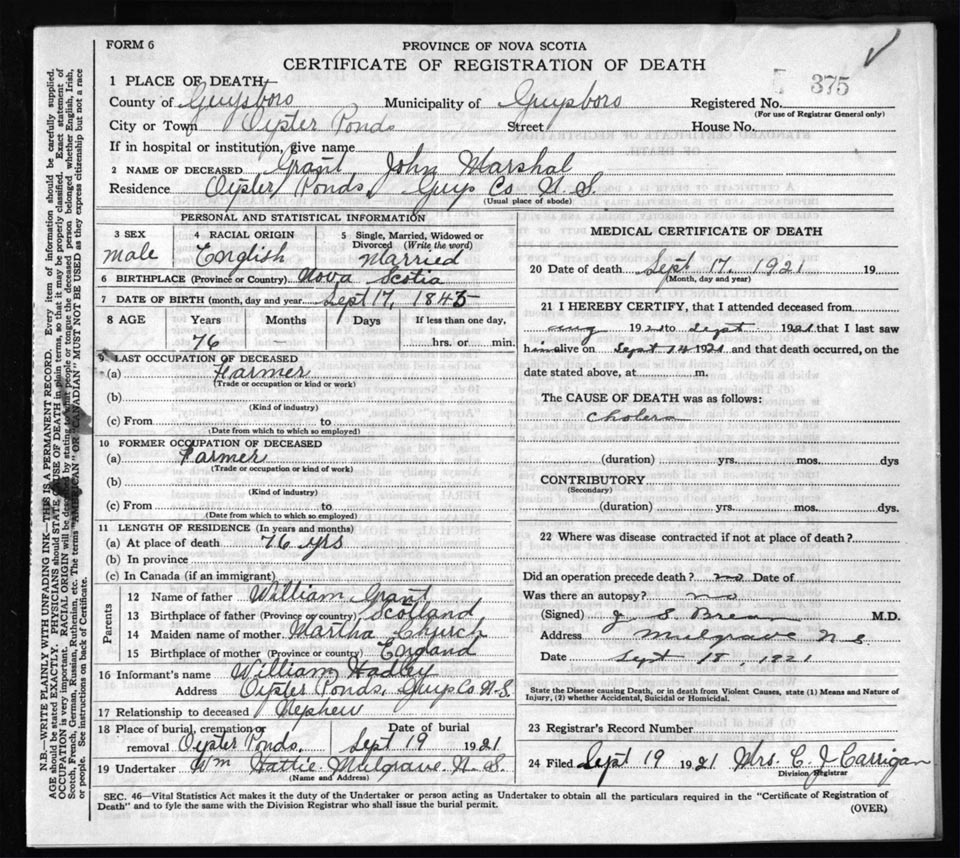 FORM 6
PROVINCE OF NOVA SCOTIA
CERTIFICATE OF REGISTRATION OF DEATH
375
1 PLACE OF DEATH
County of Guysboro Municipality of Guysboro Registered No.
(For use of Registrar General only)
City or Town Oyster Ponds Street House No.
If in hospital or institution, give name
2 NAME OF DECEASED Grant John Marshal
Residence Oyster Ponds, Guys Co N. S.
(Usual place of abode)
PERSONAL AND STATISTICAL INFORMATION
3 SEX male
4 RACIAL ORIGIN English
5 Single, Married, Widowed or Divorced (Write the word) Married
6 BIRTHPLACE (Province or Country) Nova Scotia
7 DATE OF BIRTH (month, day and year) Sept 17, 1845
8 AGE Years Months Days If less than one day,
76 - hrs. or min.
9 LAST OCCUPATION OF DECEASED
(a) Farmer
(Trade or occupation or kind or work)
(b)
(Kind of industry)
(c) From to
(Date from which to which so employed)
10 FORMER OCCUPATION OF DECEASED
(a) Farmer
(Trade or occupation or kind of work)
(b)
(Kind of industry)
(c) From to
(Date from which to which so employed)
11 LENGTH OF RESIDENCE (In years and months)
(a) At place of death 76 yrs
(b) In province
(c) In Canada (if an immigrant)
Parents
12 Name of father William Grant
13 Birthplace of father (Province or country) Scotland
14 Maiden name of mother Martha Church
15 Birthplace of mother (Province or country) England
16 Informant's name William Hadley
Address Oyster Ponds, Guys Co. N. S.
17 Relationship to deceased Nephew
18 Place of burial, cremation or removal Oyster Ponds. Date of burial Sept 19 1921
19 Undertaker Wm Hattie Mulgrave N. S.
(Name and Address)
MEDICAL CERTIFICATE OF DEATH
20 Date of death Sept 17, 1921 19
(Month, day and year)
21 I HEREBY CERTIFY, that I attended deceased from
aug 1921 to Sept 1921 that I last saw
him alive on Sept 14 1921 and that death occurred, on the
date stated above, at m.
The CAUSE OF DEATH was as follows:
Cholera
(duration) yrs. mos. dys
CONTRIBUTORY
(Secondary)
(duration) yrs. mos. dys.
22 Where was disease contracted if not at place of death?
Did an operation precede death? no Date of
Was there an autopsy? no
(Signed) J. S. M.D.
Address Mulgrave N S
Date Sept 18, 1921
State the Disease causing Death, or in death from Violent Causes, state (1) Means and Nature of
Injury, (2) whether Accidental, Suicidal or Homicidal.
23 Registrar's Record Number
24 Filed Sept 19 1921 Mrs. C. J Carrigan
Division Registrar
SEC. 46—Vital Statistics Act makes it the duty of the Undertaker or person acting as Undertaker to obtain all the particulars required in the "Certificate of Registration of
Death" and to fyle the same with the Division Registrar who shall issue the burial permit.
(OVER)
N.B.—WRITE PLAINLY WITH UNFADING INK—THIS IS A PERMANENT RECORD. Every item of information should be carefully supplied.
AGE should be stated EXACTLY. PHYSICIANS should STATE CAUSE OF DEATH in plain terms, so that it may be properly classified. Exact statement of
OCCUPATION is very important. RACIAL ORIGIN will be defined by stating to what people or tongue the deceased person belonged whether English, Irish,
Scotch, French, German, Russian, Ruthenian, etc. The terms "AMERICAN" OR "CANADIAN" MUST NOT BE USED as they express citizenship but not a race
or people. See instructions on back of Certificate.